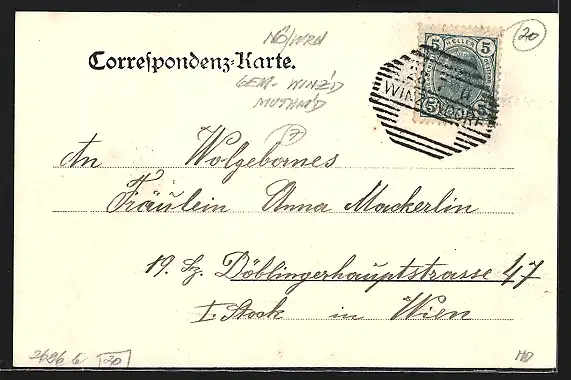 Correspondenz-Karte.
NÖ/WRN
GEM. WINZ'D
MUTHM'D
20
5 HELLER 5
5 5
WINZENDORF
An Wolgebornes
Fräulein Anna Mackerlin
19. Bz. Döblingerhauptstrasse 47
I. Stock in Wien
2686 G 20
MD